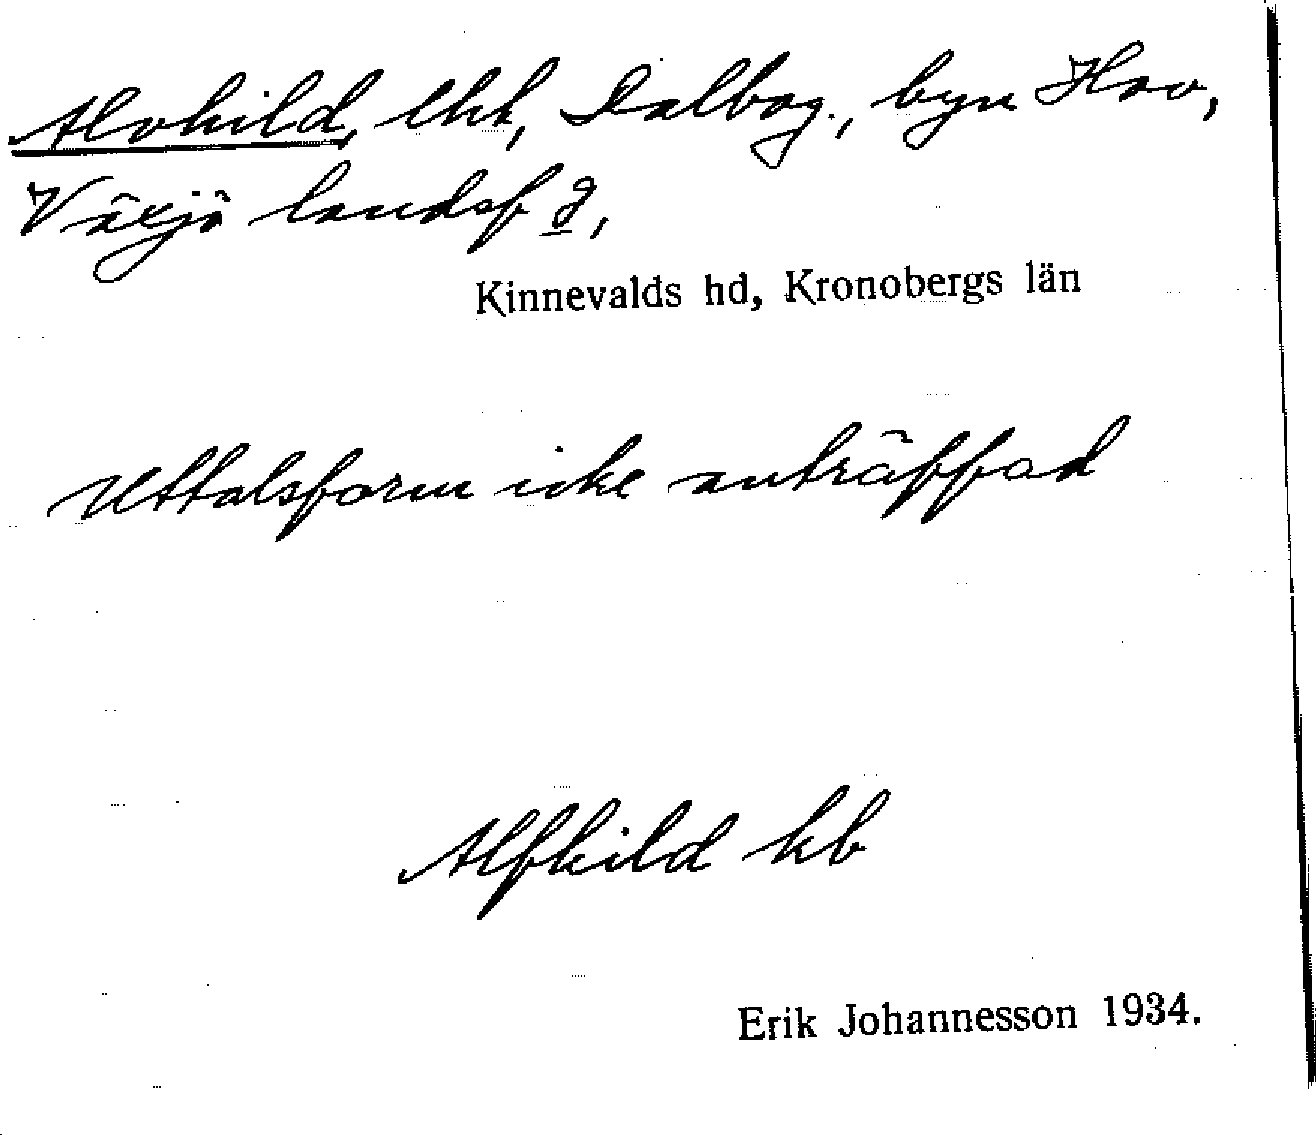 Alvhild, lht, Dalbog., byn Hov,
Växjö landsf d,
Kinnevalds hd, Kronobergs län
Uttalsform icke anträffad
Alfhild kb
Erik Johannesson 1934.